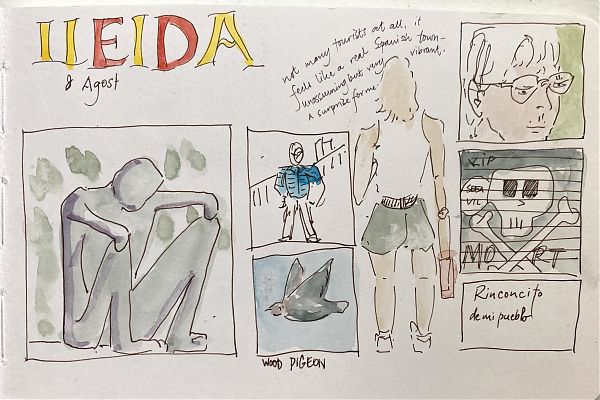 LLEIDA
8 Agost
not many tourists at all, it
feels like a real Spanish town-
unassuming but very vibrant.
A surprize for me.
V.I.P
MO RT
WOOD PIGEON
Rinconcito
de mi pueblo